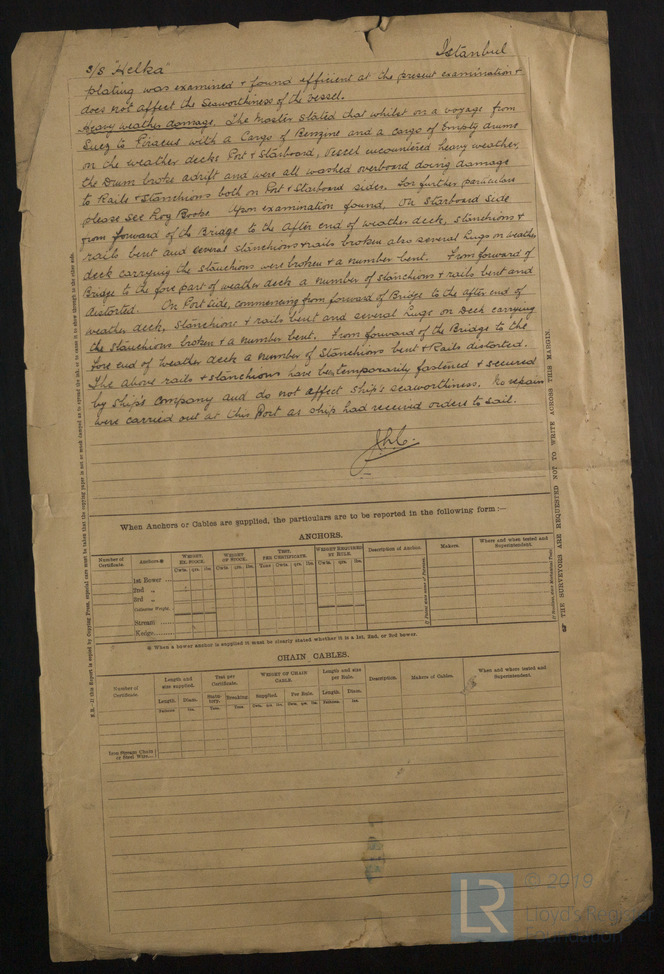 s/s "Helka"
Istanbul
plating was examined & found efficient at the present examination &
does not affect the seaworthiness of the vessel.
Heavy weather damage. The Master stated that whilst on a voyage from
Suez to Piraeus with a Cargo of Benzine and a cargo of Empty drums
on the weather decks Port & Starboard, Vessel encountered heavy weather,
the Drum broke adrift and were all washed overboard doing damage
to Rails & Stanchions both on Port & Starboard sides. For further particulars
please see Log Books. Upon examination found, On Starboard Side
from forward of the Bridge to the After end of weather deck, stanchions &
rails bent and several stanchions & rails broken also several lugs on weather
deck carrying the stanchions were broken & a number bent. From forward of
Bridge to the fore part of weather deck a number of stanchions & rails bent and
distorted. On Port side, commencing from forward of Bridge to the after end of
weather deck, Stanchions & rails bent and several lugs on Deck carrying
the Stanchions broken & a number bent. From forward of the Bridge to the
Fore end of Weather deck a number of Stanchions bent & Rails distorted.
The above rails & stanchions have been temporarily fastened & secured
by ship's Company and do not affect ship's seaworthiness. No repairs
were carried out at this Port as ship had received orders to sail.
When Anchors or Cables are supplied, the particulars are to be reported in the following form :—
ANCHORS.
Number of Certificate.
Anchors.※
WEIGHT EX. STOCK.
WEIGHT OF STOCK.
TEST, PER CERTIFICATE.
WEIGHT REQUIRED BY RULE.
Description of Anchor.
Makers.
Where and when tested and Superintendent.
Cwts. qrs. lbs.
Cwts. qrs. lbs.
Tons Cwts. qrs. lbs.
Cwts. qrs. lbs.
1st Bower
2nd "
3rd "
Collective Weight.
Stream
Kedge
※ When a bower anchor is supplied it must be clearly stated whether it is a 1st, 2nd, or 3rd bower.
CHAIN CABLES.
Number of Certificate.
Length and size supplied.
Test per Certificate.
WEIGHT OF CHAIN CABLE.
Length and size per Rule.
Description.
Makers of Cables.
When and where tested and Superintendent.
Length.
Diam.
Statutory.
Breaking.
Supplied.
Per Rule.
Length.
Diam.
Iron Stream Chain or Steel Wire
THE SURVEYORS ARE REQUESTED NOT TO WRITE ACROSS THIS MARGIN.
LR
© 2019
Lloyd's Register
Foundation